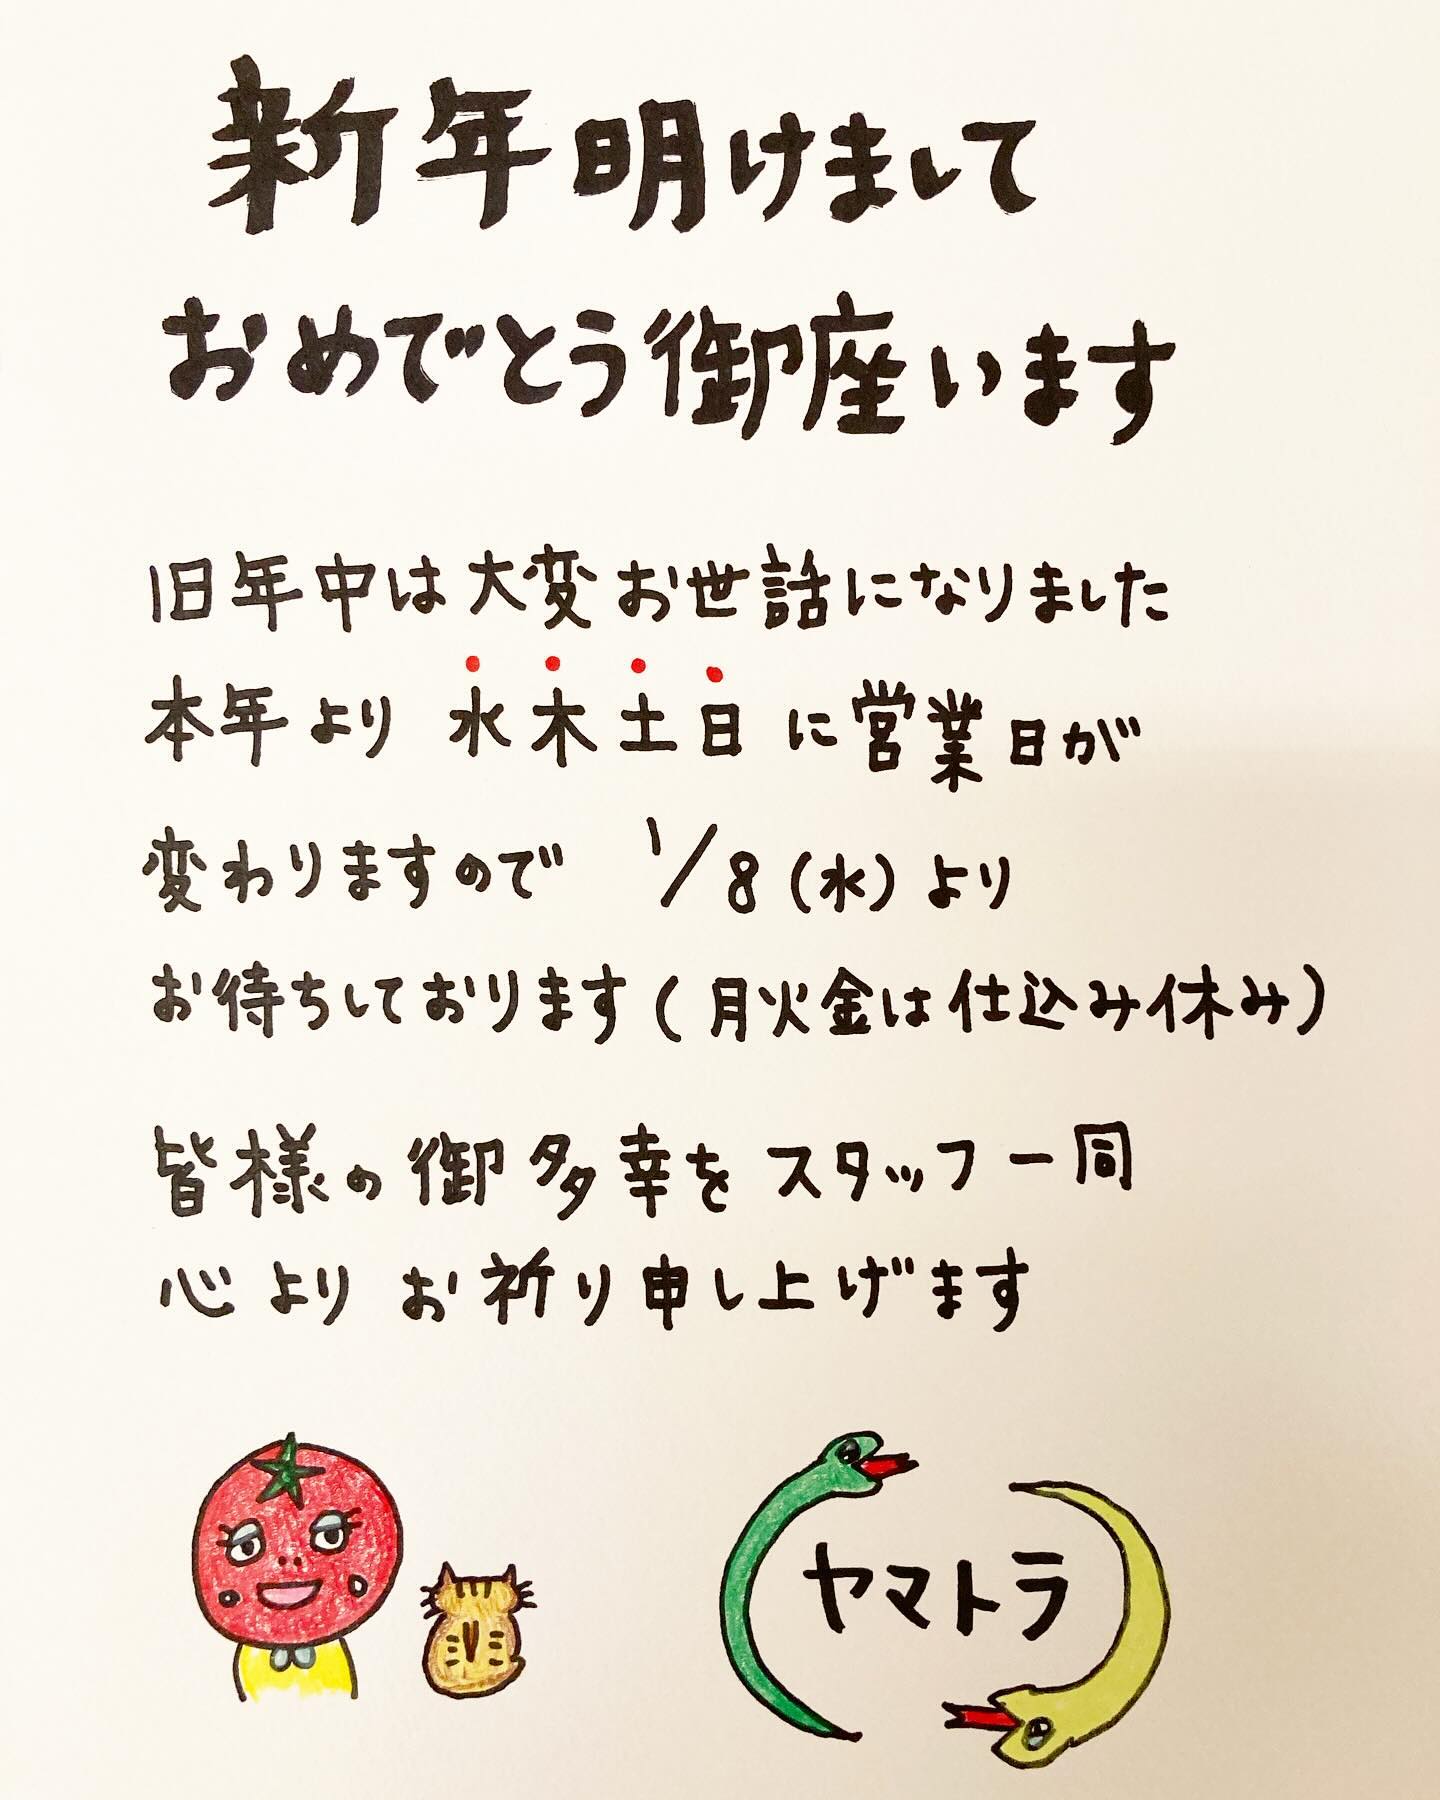 新年明けまして
おめでとう御座います
旧年中は大変お世話になりました
本年より 水木土日 に営業日が
変わりますので 1/8(水)より
お待ちしております(月火金は仕込み休み)
皆様の御多幸をスタッフ一同
心よりお祈り申し上げます
ヤマトラ